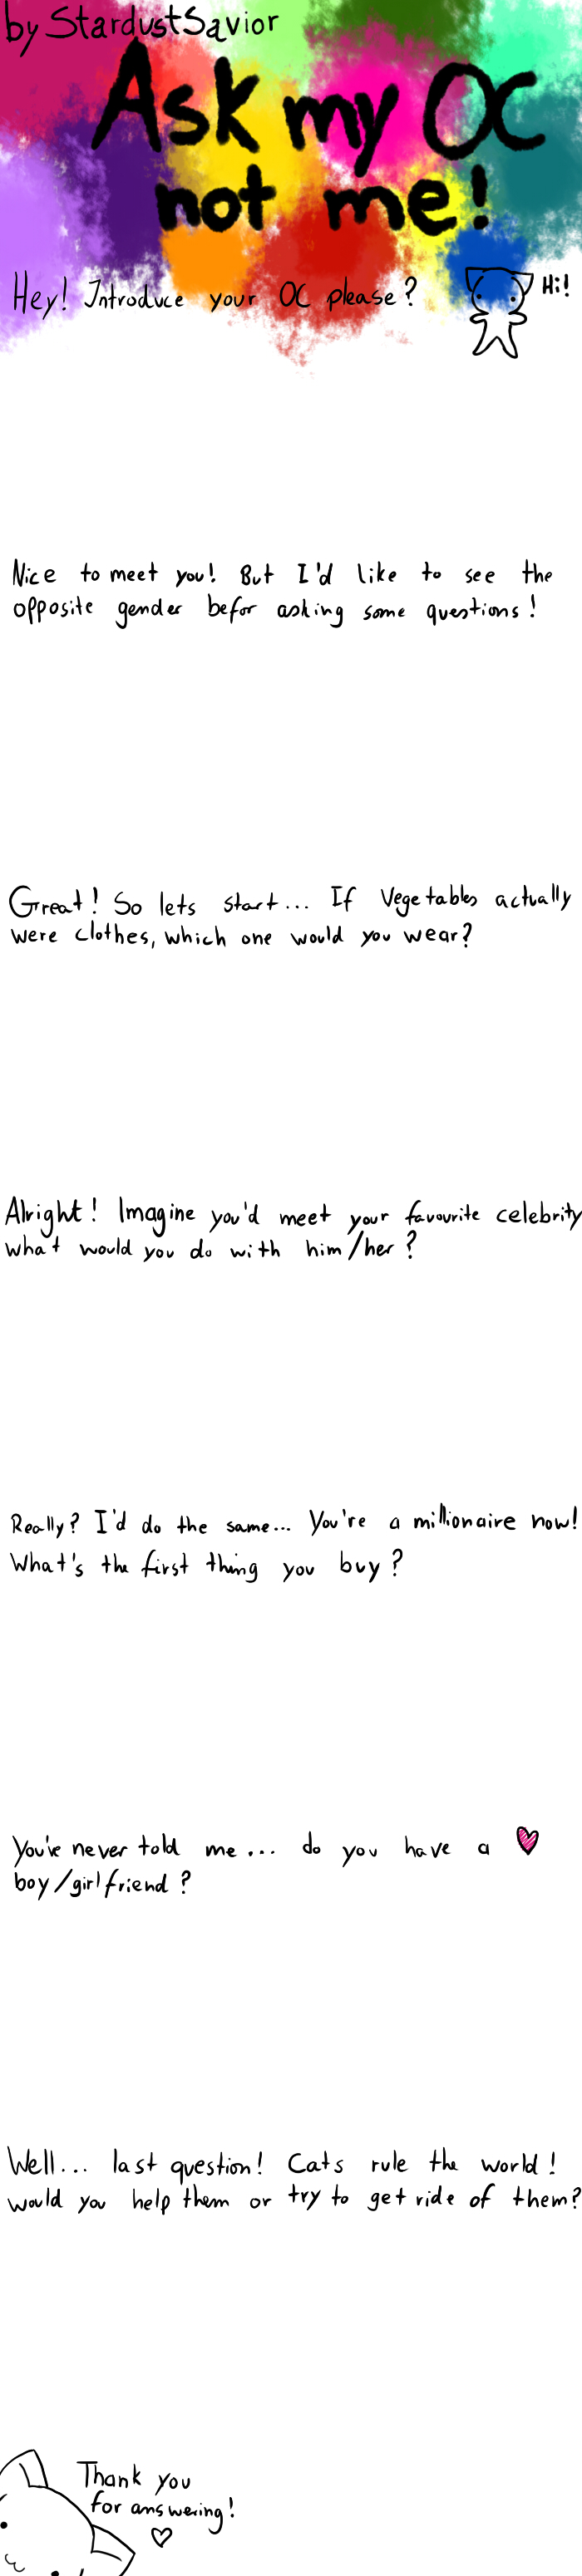 by StardustSavior
Ask my OC
not me!
Hey! Introduce your OC please?
Hi!
Nice to meet you! But I'd like to see the
opposite gender befor asking some questions!
Great! So lets start... If Vegetables actually
were clothes, which one would you wear?
Alright! Imagine you'd meet your favourite celebrity
what would you do with him/her?
Really? I'd do the same... You're a millionaire now!
What's the first thing you buy?
You've never told me... do you have a
boy/girlfriend?
Well... last question! Cats rule the world!
would you help them or try to get ride of them?
Thank you
for answering!